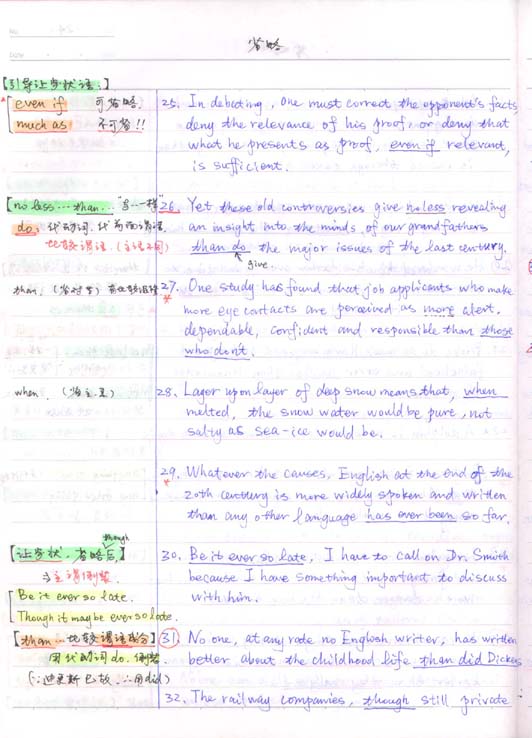 省略
【引导让步状语:】
even if 可省略.
much as 不可省!!
25. In debating, one must correct the opponent's facts,
deny the relevance of his proof, or deny that
what he presents as proof, even if relevant,
is sufficient.
【no less … than … "与…一样"
do: 代动词, 代前面谓语,
比较谓语. (主语不同)
26. Yet these old controversies give no less revealing
an insight into the minds of our grandfathers
than do the major issues of the last century.
give.
than. (省对象)
27. One study has found that job applicants who make
more eye contacts are perceived as more alert.
dependable, confident and responsible than those
who don't.
when. (省主.系)
28. Lager upon layer of deep snow means that, when
melted, the snow water would be pure, not
salty as sea-ice would be.
29. Whatever the causes, English at the end of the
20th century is more widely spoken and written
than any other language has ever been so far.
though
【让步状. 省略后,】
→主谓倒装.
Be it ever so late.
Though it may be ever so late.
30. Be it ever so late, I have to call on Dr. Smith
because I have something important to discuss
with him.
【than … 比较谓语成分】
用代动词 do. 倒装
(∵迪更斯已故. ∴用did)
31. No one, at any rate no English writer, has written
better about the childhood life than did Dickens
32. The railway companies, though still private